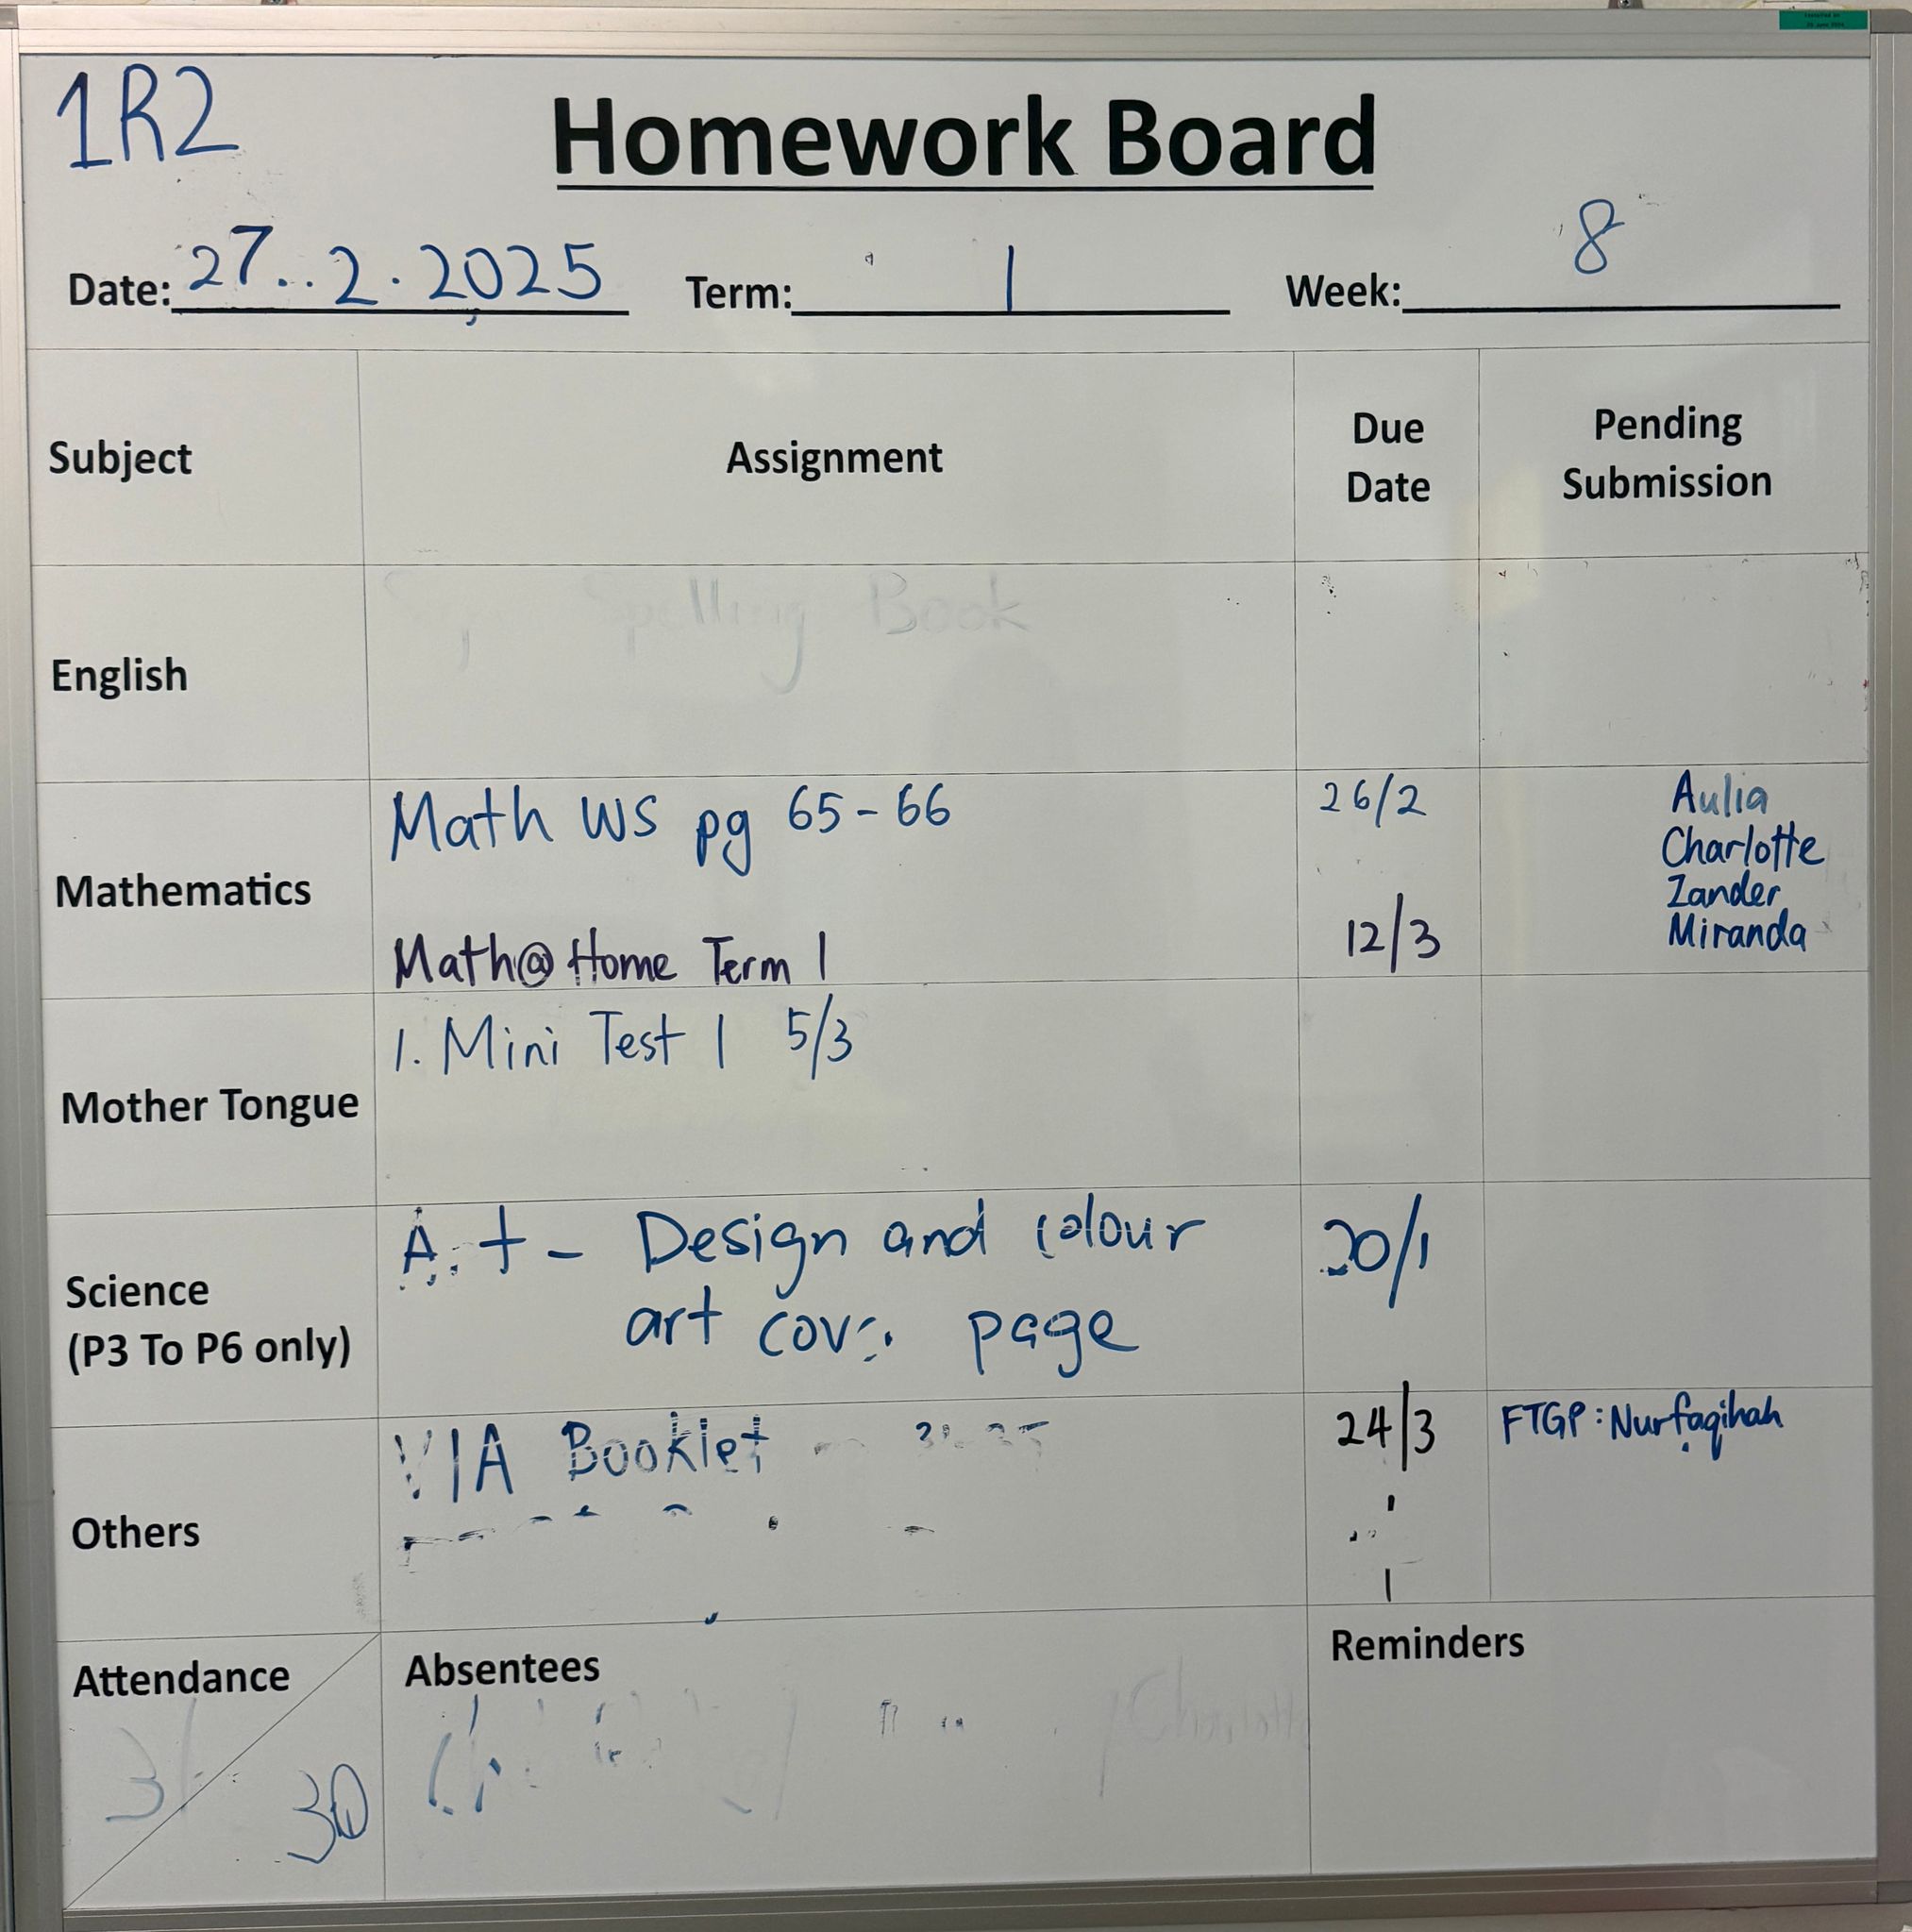 1R2
Homework Board
Date: 27..2.2025 Term: 1 Week: 8
Subject Assignment Due Date Pending Submission
English Spelling Book
Mathematics
Math WS pg 65-66 26/2
Aulia
Charlotte
Zander
Miranda
Math@Home Term 1 12/3
Mother Tongue
1. Mini Test 1 5/3
Science
(P3 To P6 only)
Design and colour 20/1
art page
Others
VIA Booklet 24/3 FTGP: Nurfaqihah
Attendance Absentees Reminders
30